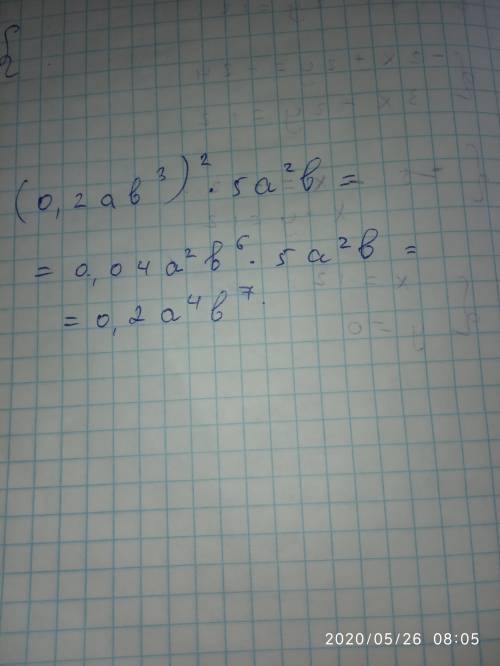 (0,2ab³)² · 5a²b =
= 0,04a²b⁶ · 5a²b =
= 0,2a⁴b⁷.
2020/05/26 08:05